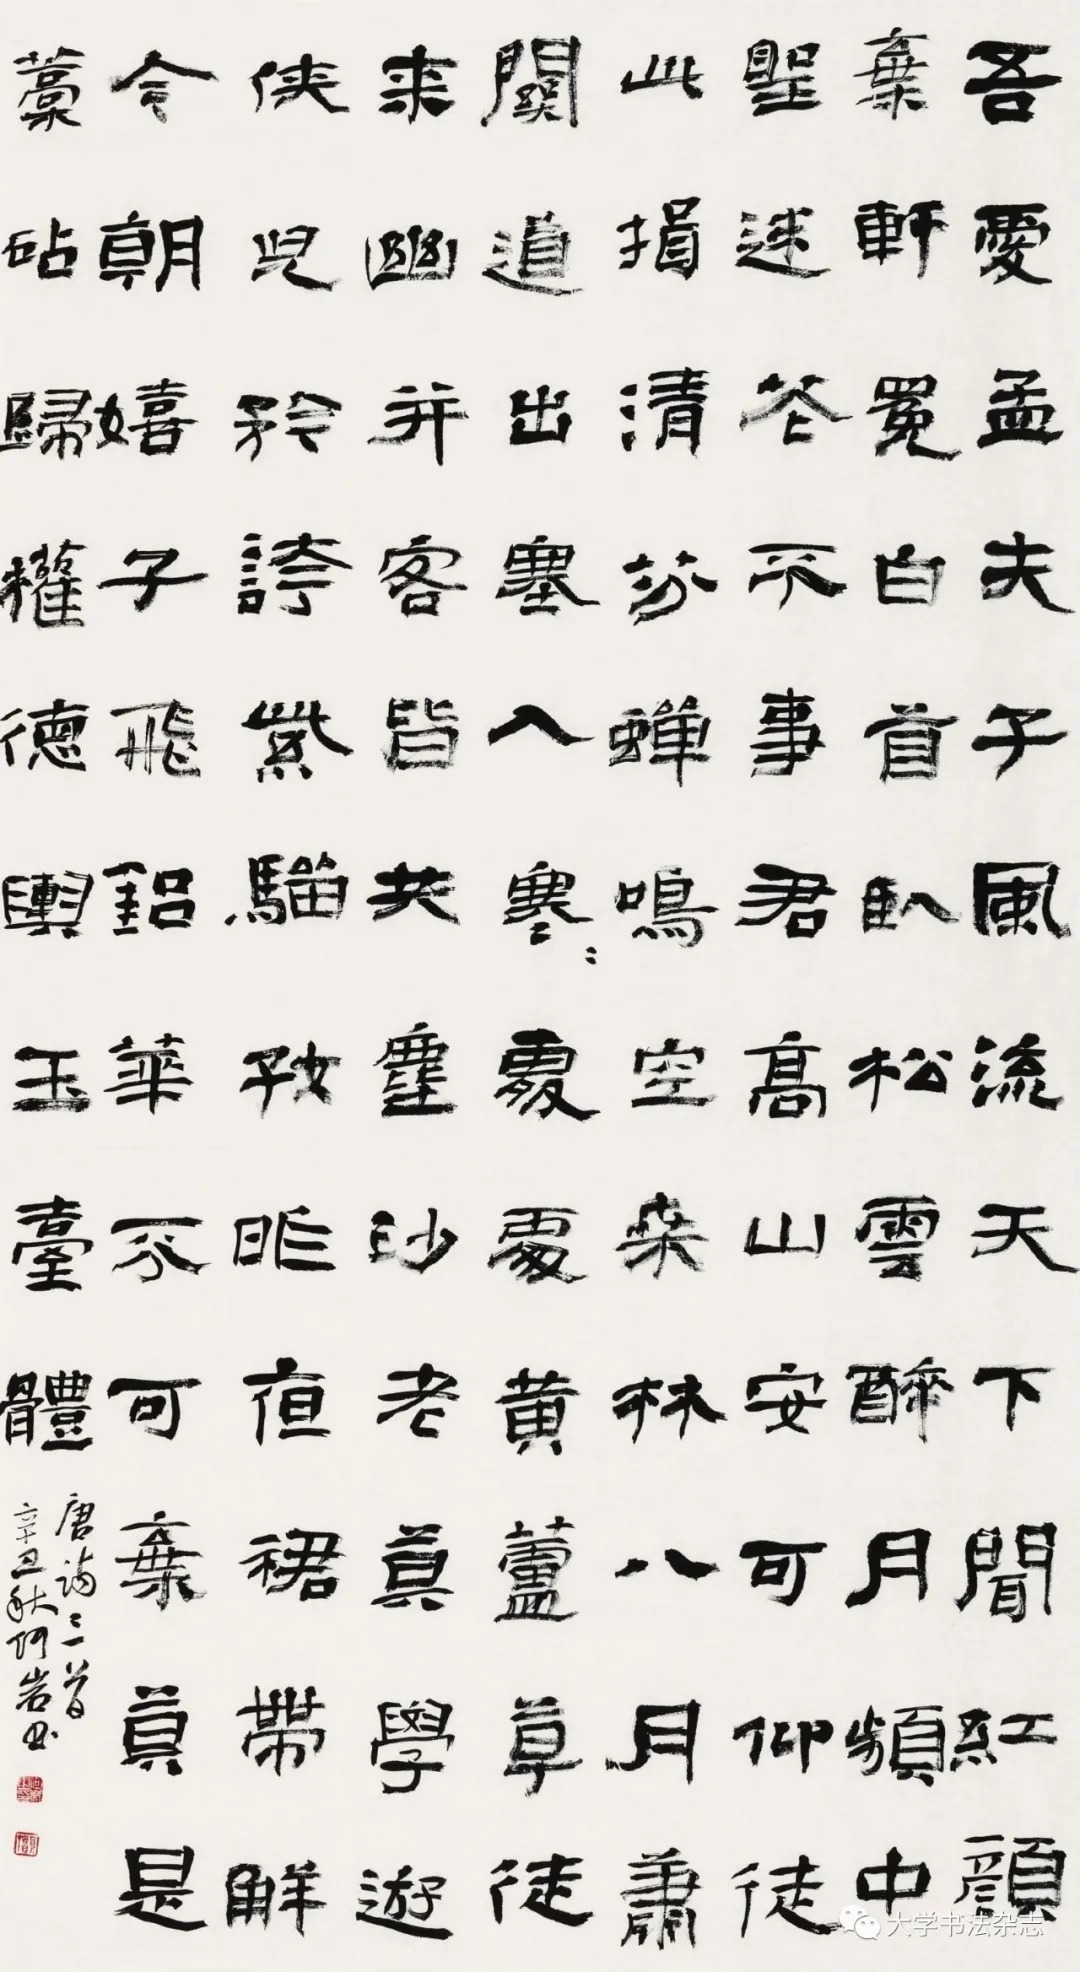 吾愛孟夫子風流天下聞紅顏
棄軒冕白首臥松雲醉月頻中
聖迷花不事君高山安可仰徒
此揖清芬蟬鳴空桑林八月蕭
關道出塞入寒處處黃蘆草從
來幽并客皆共塵沙老莫學遊
俠兒矜誇紫騮好昨夜裙帶解
今朝嬉子飛鉛華不可棄莫是
藁砧歸權德輿玉臺體
唐詩三首
辛丑秋何岩书
大学书法杂志